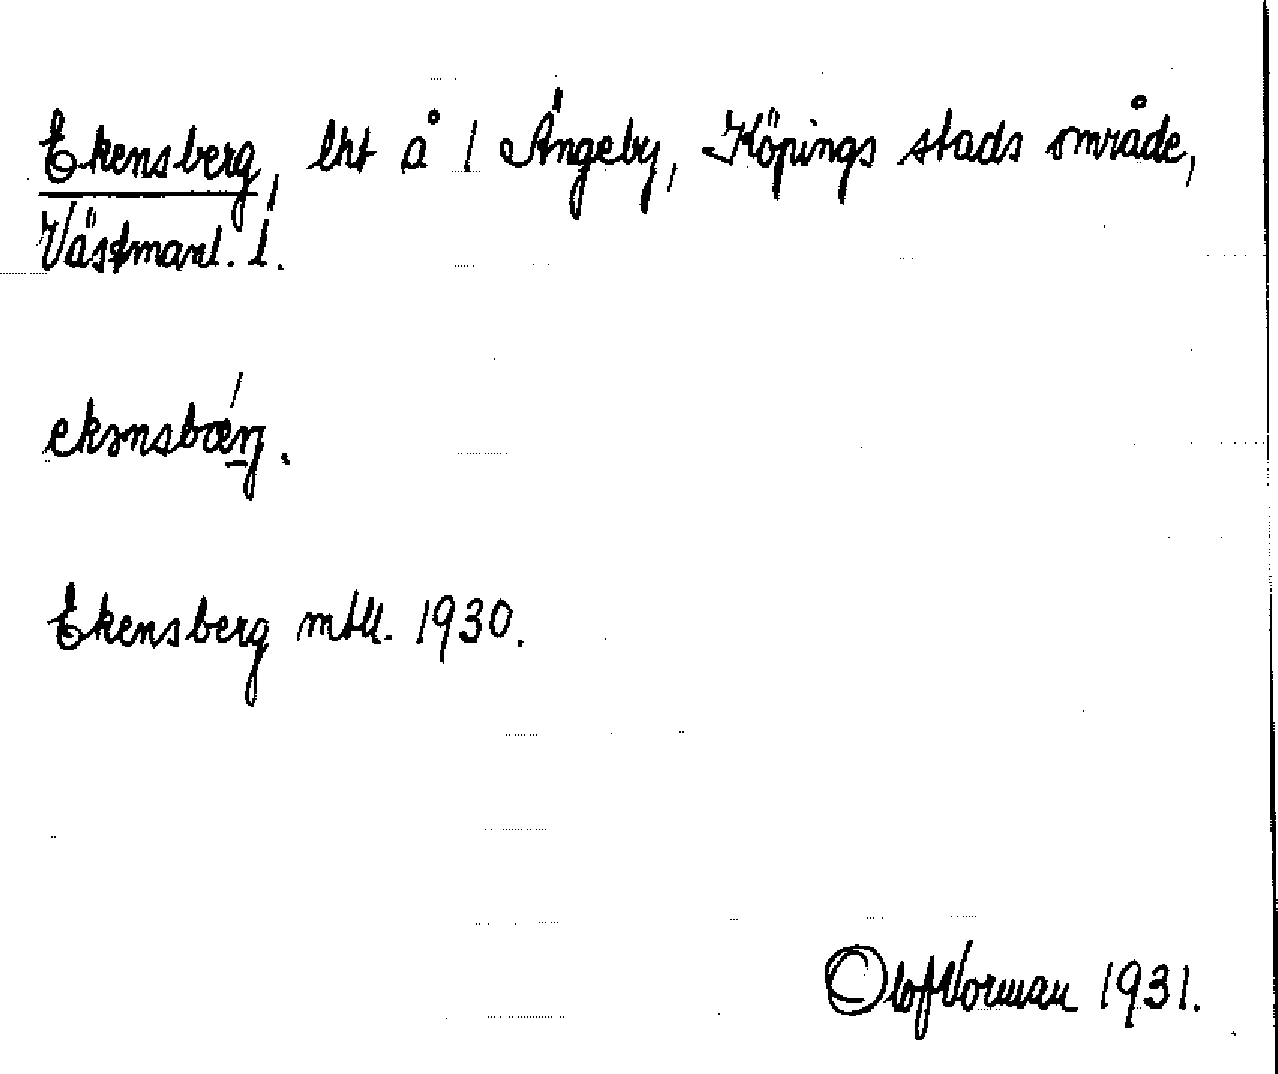 Ekensberg, lht å 1 Ängeby, Köpings stads område,
Västmanl. l.
ekənsbærj.
Ekensberg mtll. 1930.
Olof Norman 1931.